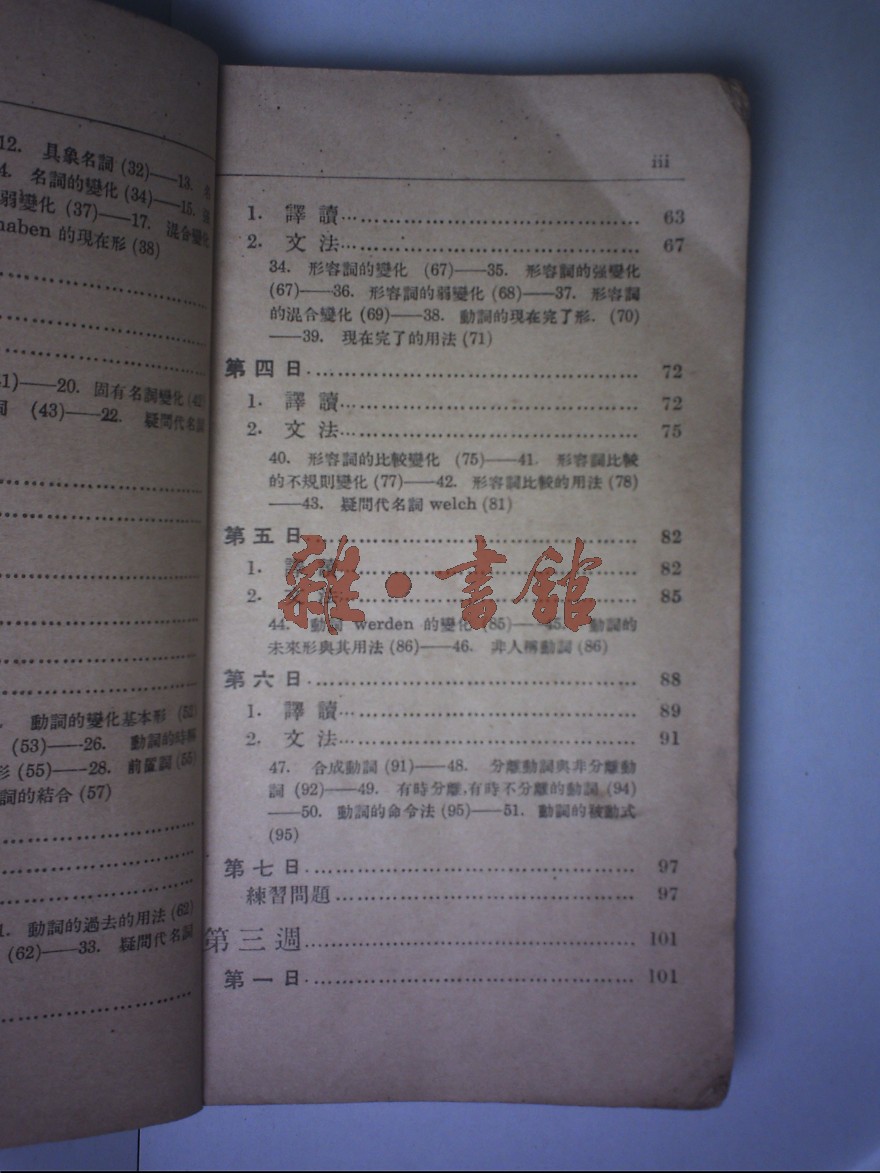 12. 具象名詞 (32)——13.
4. 名詞的變化 (34)——15.
弱變化 (37)——17. 混合變化
haben 的現在形 (38)
41)——20. 固有名詞變化 (42)
詞 (43)——22. 疑問代名詞
動詞的變化基本形 (52)
(53)——26. 動詞的時稱
形 (55)——28. 前置詞 (55)
詞的結合 (57)
1. 動詞的過去的用法 (62)
(62)——33. 疑問代名詞
iii
1. 譯讀 63
2. 文法 67
34. 形容詞的變化 (67)——35. 形容詞的强變化
(67)——36. 形容詞的弱變化 (68)——37. 形容詞
的混合變化 (69)——38. 動詞的現在完了形. (70)
——39. 現在完了的用法 (71)
第四日 72
1. 譯讀 72
2. 文法 75
40. 形容詞的比較變化 (75)——41. 形容詞比較
的不規則變化 (77)——42. 形容詞比較的用法 (78)
——43. 疑問代名詞 welch (81)
第五日 82
1. 譯讀 82
2. 文法 85
雜·書館
44. 動詞 werden 的變化 (85)——45. 動詞的
未來形與其用法 (86)——46. 非人稱動詞 (86)
第六日 88
1. 譯讀 89
2. 文法 91
47. 合成動詞 (91)——48. 分離動詞與非分離動
詞 (92)——49. 有時分離,有時不分離的動詞 (94)
——50. 動詞的命令法 (95)——51. 動詞的被動式
(95)
第七日 97
練習問題 97
第三週 101
第一日 101